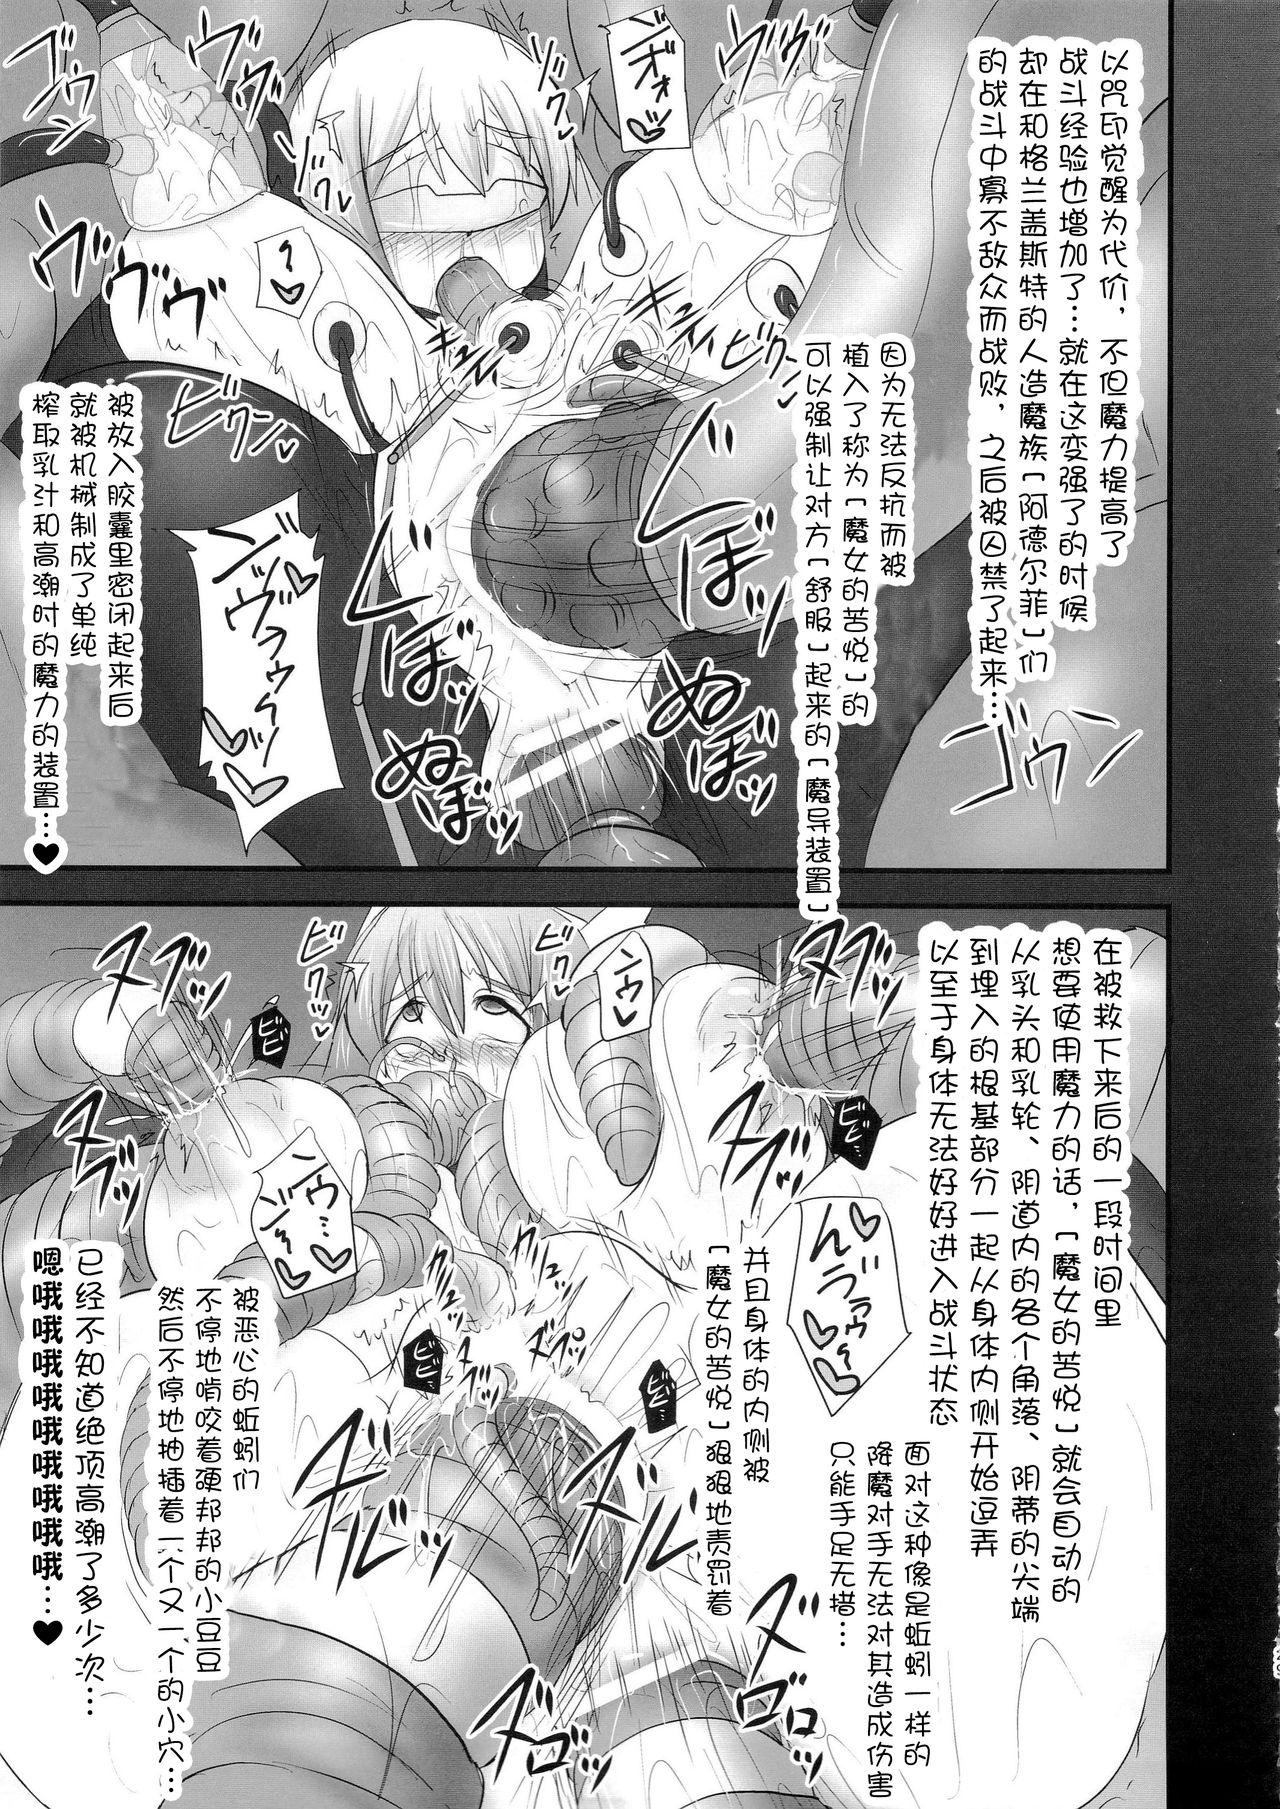 以咒印觉醒为代价，不但魔力提高了
战斗经验也增加了…就在这变强了的时候
却在和格兰盖斯特的人造魔族「阿德尔菲」们
的战斗中寡不敌众而战败，之后被囚禁了起来…
因为无法反抗而被
植入了称为「魔女的苦悦」的
可以强制让对方「舒服」起来的「魔导装置」
被放入胶囊里密闭起来后
就被机械制成了单纯
榨取乳汁和高潮时的魔力的装置…♥
ゴウン
ヴヴヴ
ヴヴヴ
ゴウン
ビクン
ビクン
ぬぼっ
ぬぼっ
在被救下来后的一段时间里
想要使用魔力的话，「魔女的苦悦」就会自动的
从乳头和乳轮、阴道内的各个角落、阴蒂的尖端
到埋入的根基部分一起从身体内侧开始逗弄
以至于身体无法好好进入战斗状态
面对这种像是蚯蚓一样的
降魔对手无法对其造成伤害
只能手足无措…
并且身体的内侧被
「魔女的苦悦」狠狠地责罚着
被恶心的蚯蚓们
不停地啃咬着硬邦邦的小豆豆
然后不停地抽插着一个又一个的小穴…
已经不知道绝顶高潮了多少次…
嗯哦哦哦哦哦哦哦哦哦…♥
ビクッ
ビクッ
ヌブッ
ヌブッ
ビビ
ビビ
ビビ
ビビ
ズボッ
ゴロゴロ